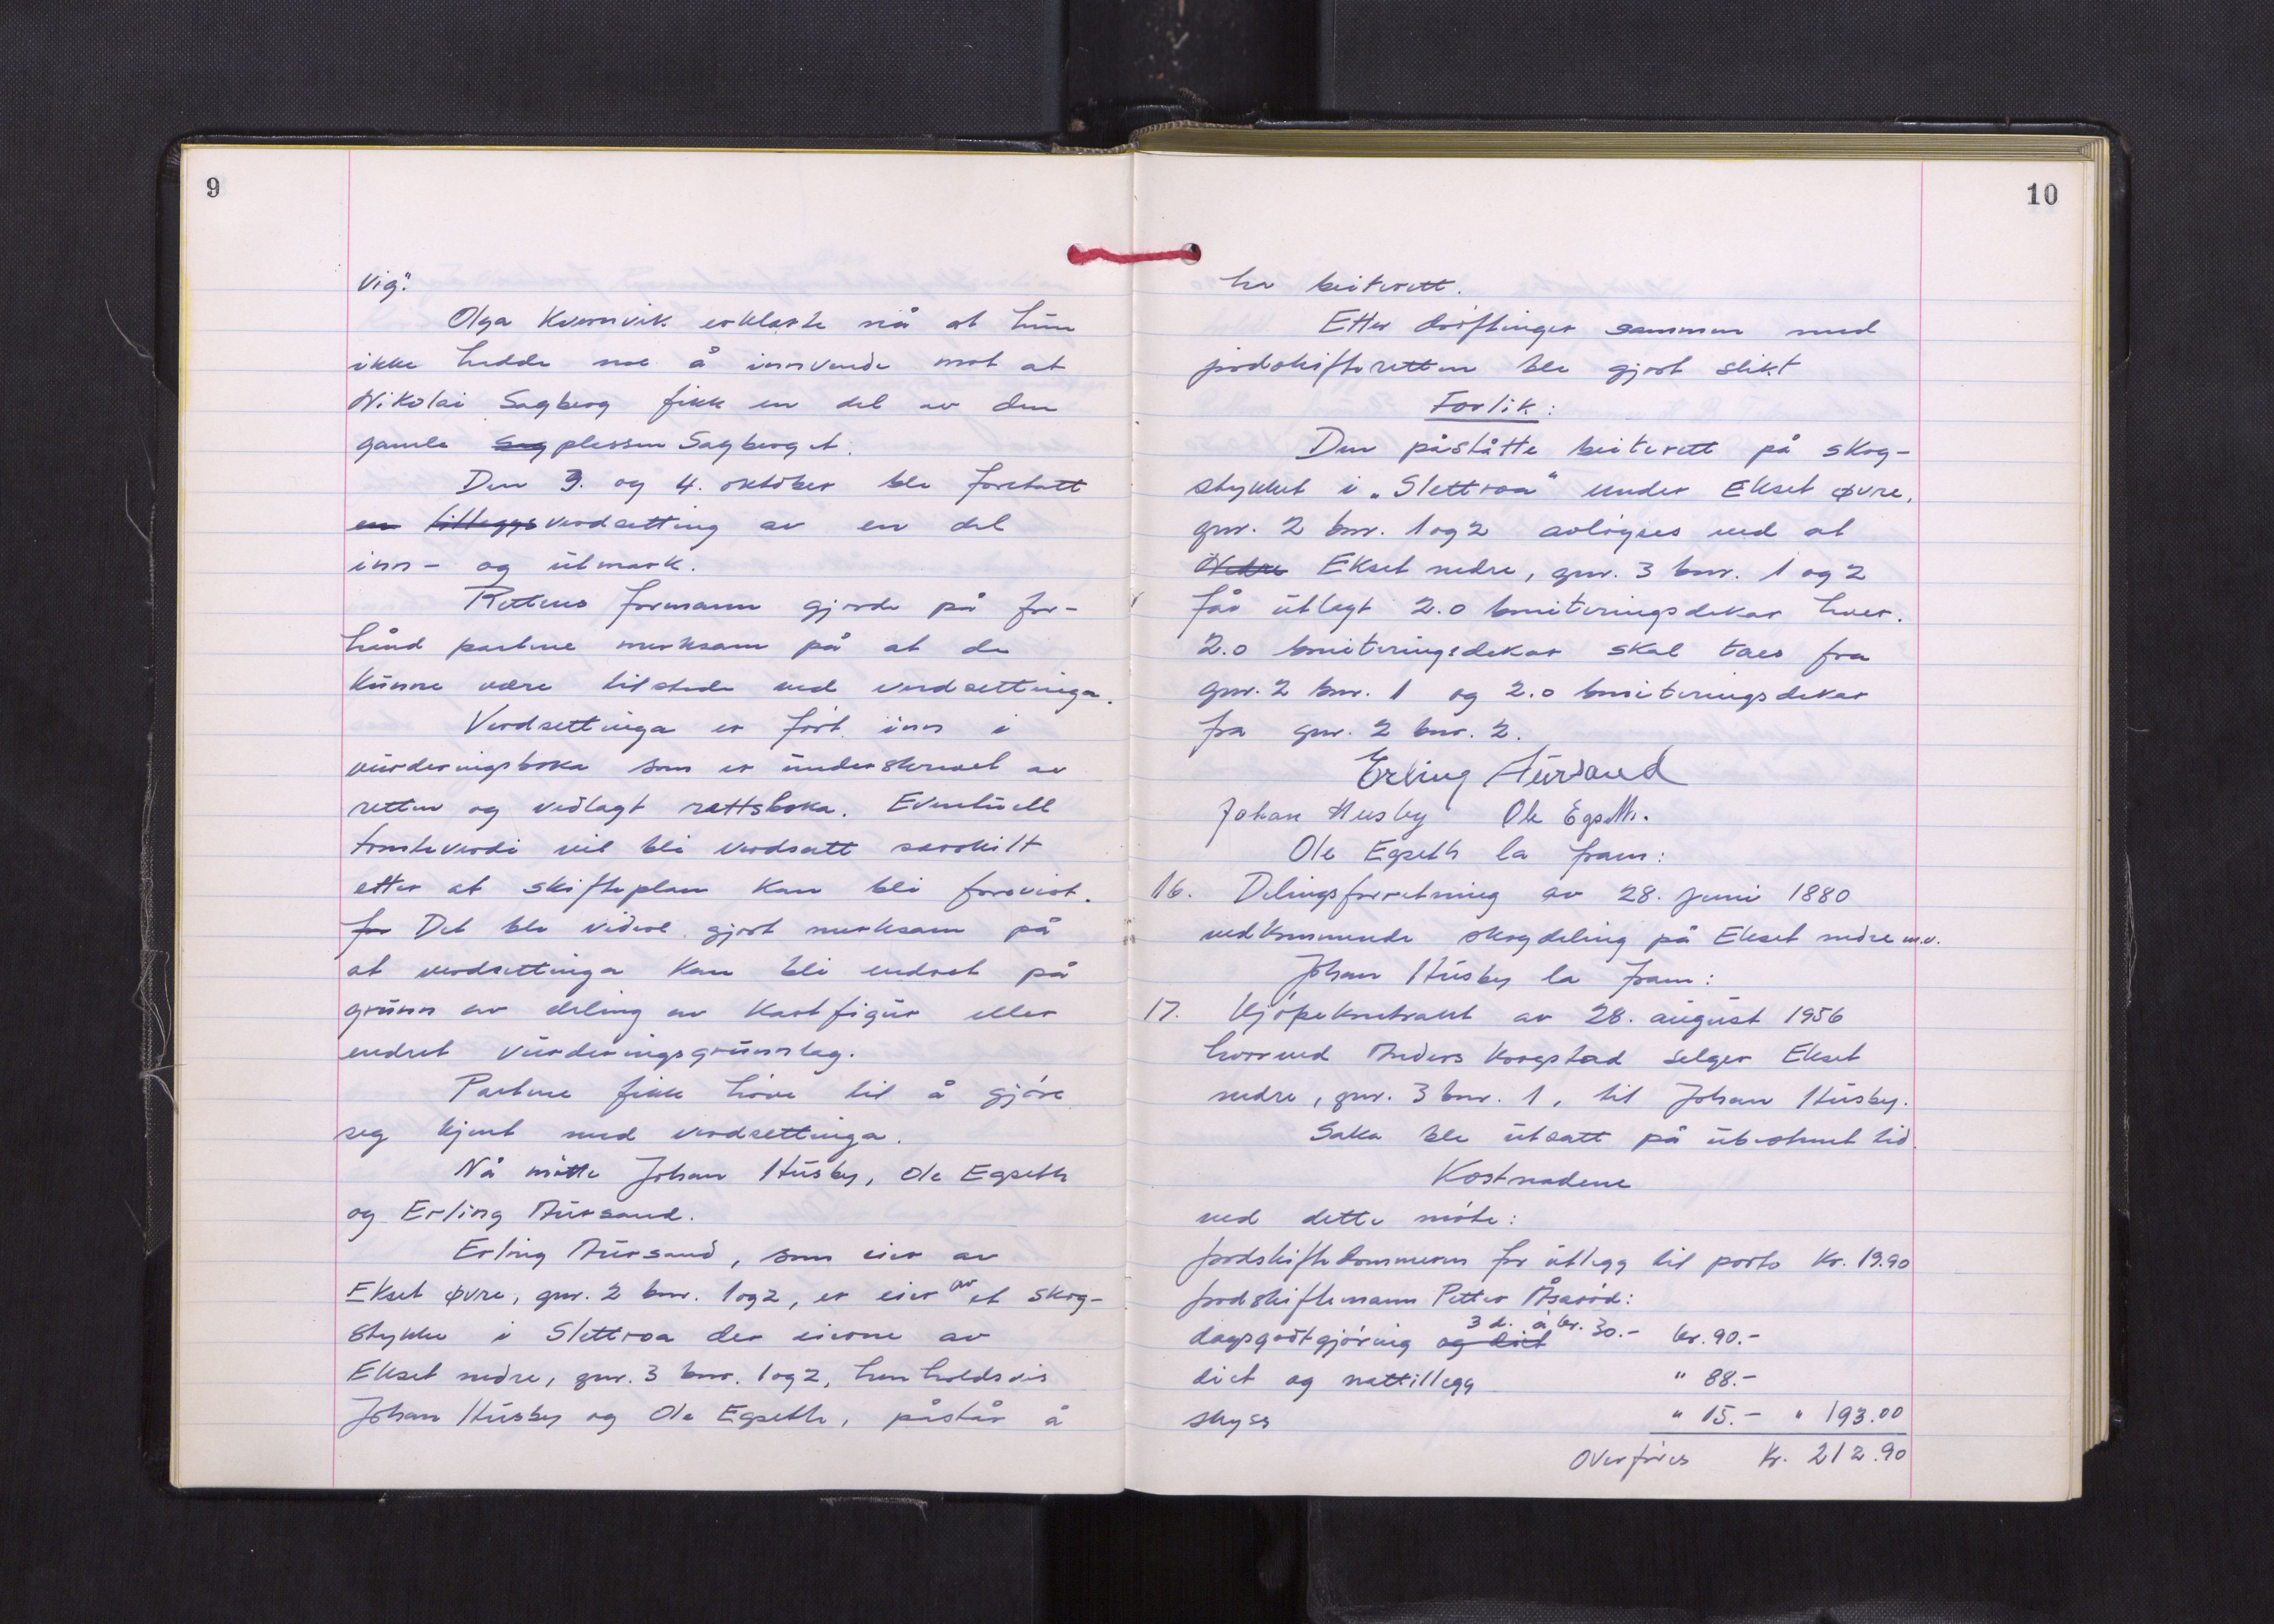 9
vig".
Olga Kvernvik erklærte nå at hun
ikke hadde noe å innvende mot at
Nikolai Sagberg fikk en del av den
gamle Sag plassen Sagberget.
Den 3. og 4. oktober ble foretatt
en tilleggsverdsetting av en del
inn- og utmark.
Rettens formann gjorde på for-
hånd partene merksam på at de
kunne være tilstede ved verdsettinga.
Verdsettinga er ført inn i
vurderingsboka som er underskrevet av
retten og vedlagt rettsboka. Eventuell
tomteverdi vil bli verdsatt særskilt
etter at skifteplan kan bli forevist.
for Det ble videre gjort merksam på
at verdsettinga kan bli endret på
grunn av deling av kartfigur eller
endret vurderingsgrunnlag.
Partene fikk høve til å gjøre
seg kjent med verdsettinga.
Nå møtte Johan Husby, Ole Egseth
og Erling Aursand.
Erling Aursand, som eier av
Ekset øvre, gnr. 2 bnr. 1 og 2, er eier av et skog-
stykke i Slettroa der eierne av
Ekset nedre, gnr. 3 bnr. 1 og 2, henholdsvis
Johan Husby og Ole Egseth, påstår å
10
ha beiterett.
Etter drøftinger sammen med
jordskifteretten ble gjort slikt
Forlik:
Den påståtte beiterett på skog-
stykket i „Slettroa" under Ekset øvre,
gnr. 2 bnr. 1 og 2 avløyses ved at
Nedre Ekset nedre, gnr. 3 bnr. 1 og 2
får utlagt 2.0 boniteringsdekar hver.
2.0 boniteringsdekar skal taes fra
gnr. 2 bnr. 1 og 2.0 boniteringsdekar
fra gnr. 2 bnr. 2.
Erling Aursand
Johan Husby Ole Egseth.
Ole Egseth la fram:
16. Delingsforretning av 28. juni 1880
vedkommende skogdeling på Ekset nedre m.v.
Johan Husby la fram:
17. Kjøpekontrakt av 28. august 1956
hvorved Anders Korgstad selger Ekset
nedre, gnr. 3 bnr. 1, til Johan Husby.
Saka ble utsatt på ubestemt tid.
Kostnadene
ved dette møte:
Jordskiftedommeren for utlegg til porto Kr. 19.90
Jordskiftemann Petter Åsarød:
dagsgodtgjøring og diet 3 d. á kr. 30.- kr. 90.-
diet og nattillegg " 88.-
skyss " 15.- " 193.00
Overføres Kr. 212.90